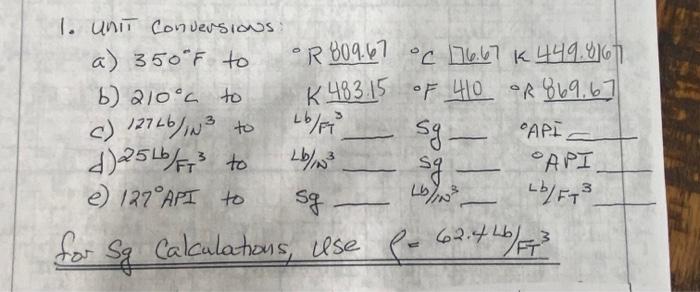 1. UNIT CONVERSIONS:
a) 350°F to °R 809.67 °C 176.67 K 449.8167
b) 210°C to K 483.15 °F 410 °R 869.67
c) 127 Lb/IN³ to Lb/FT³ ___ Sg ___ °API ___
d) 25 Lb/FT³ to Lb/IN³ ___ sg ___ °API ___
e) 127°API to Sg ___ Lb/IN³ ___ Lb/FT³ ___
for Sg Calculations, use ρ = 62.4 Lb/FT³